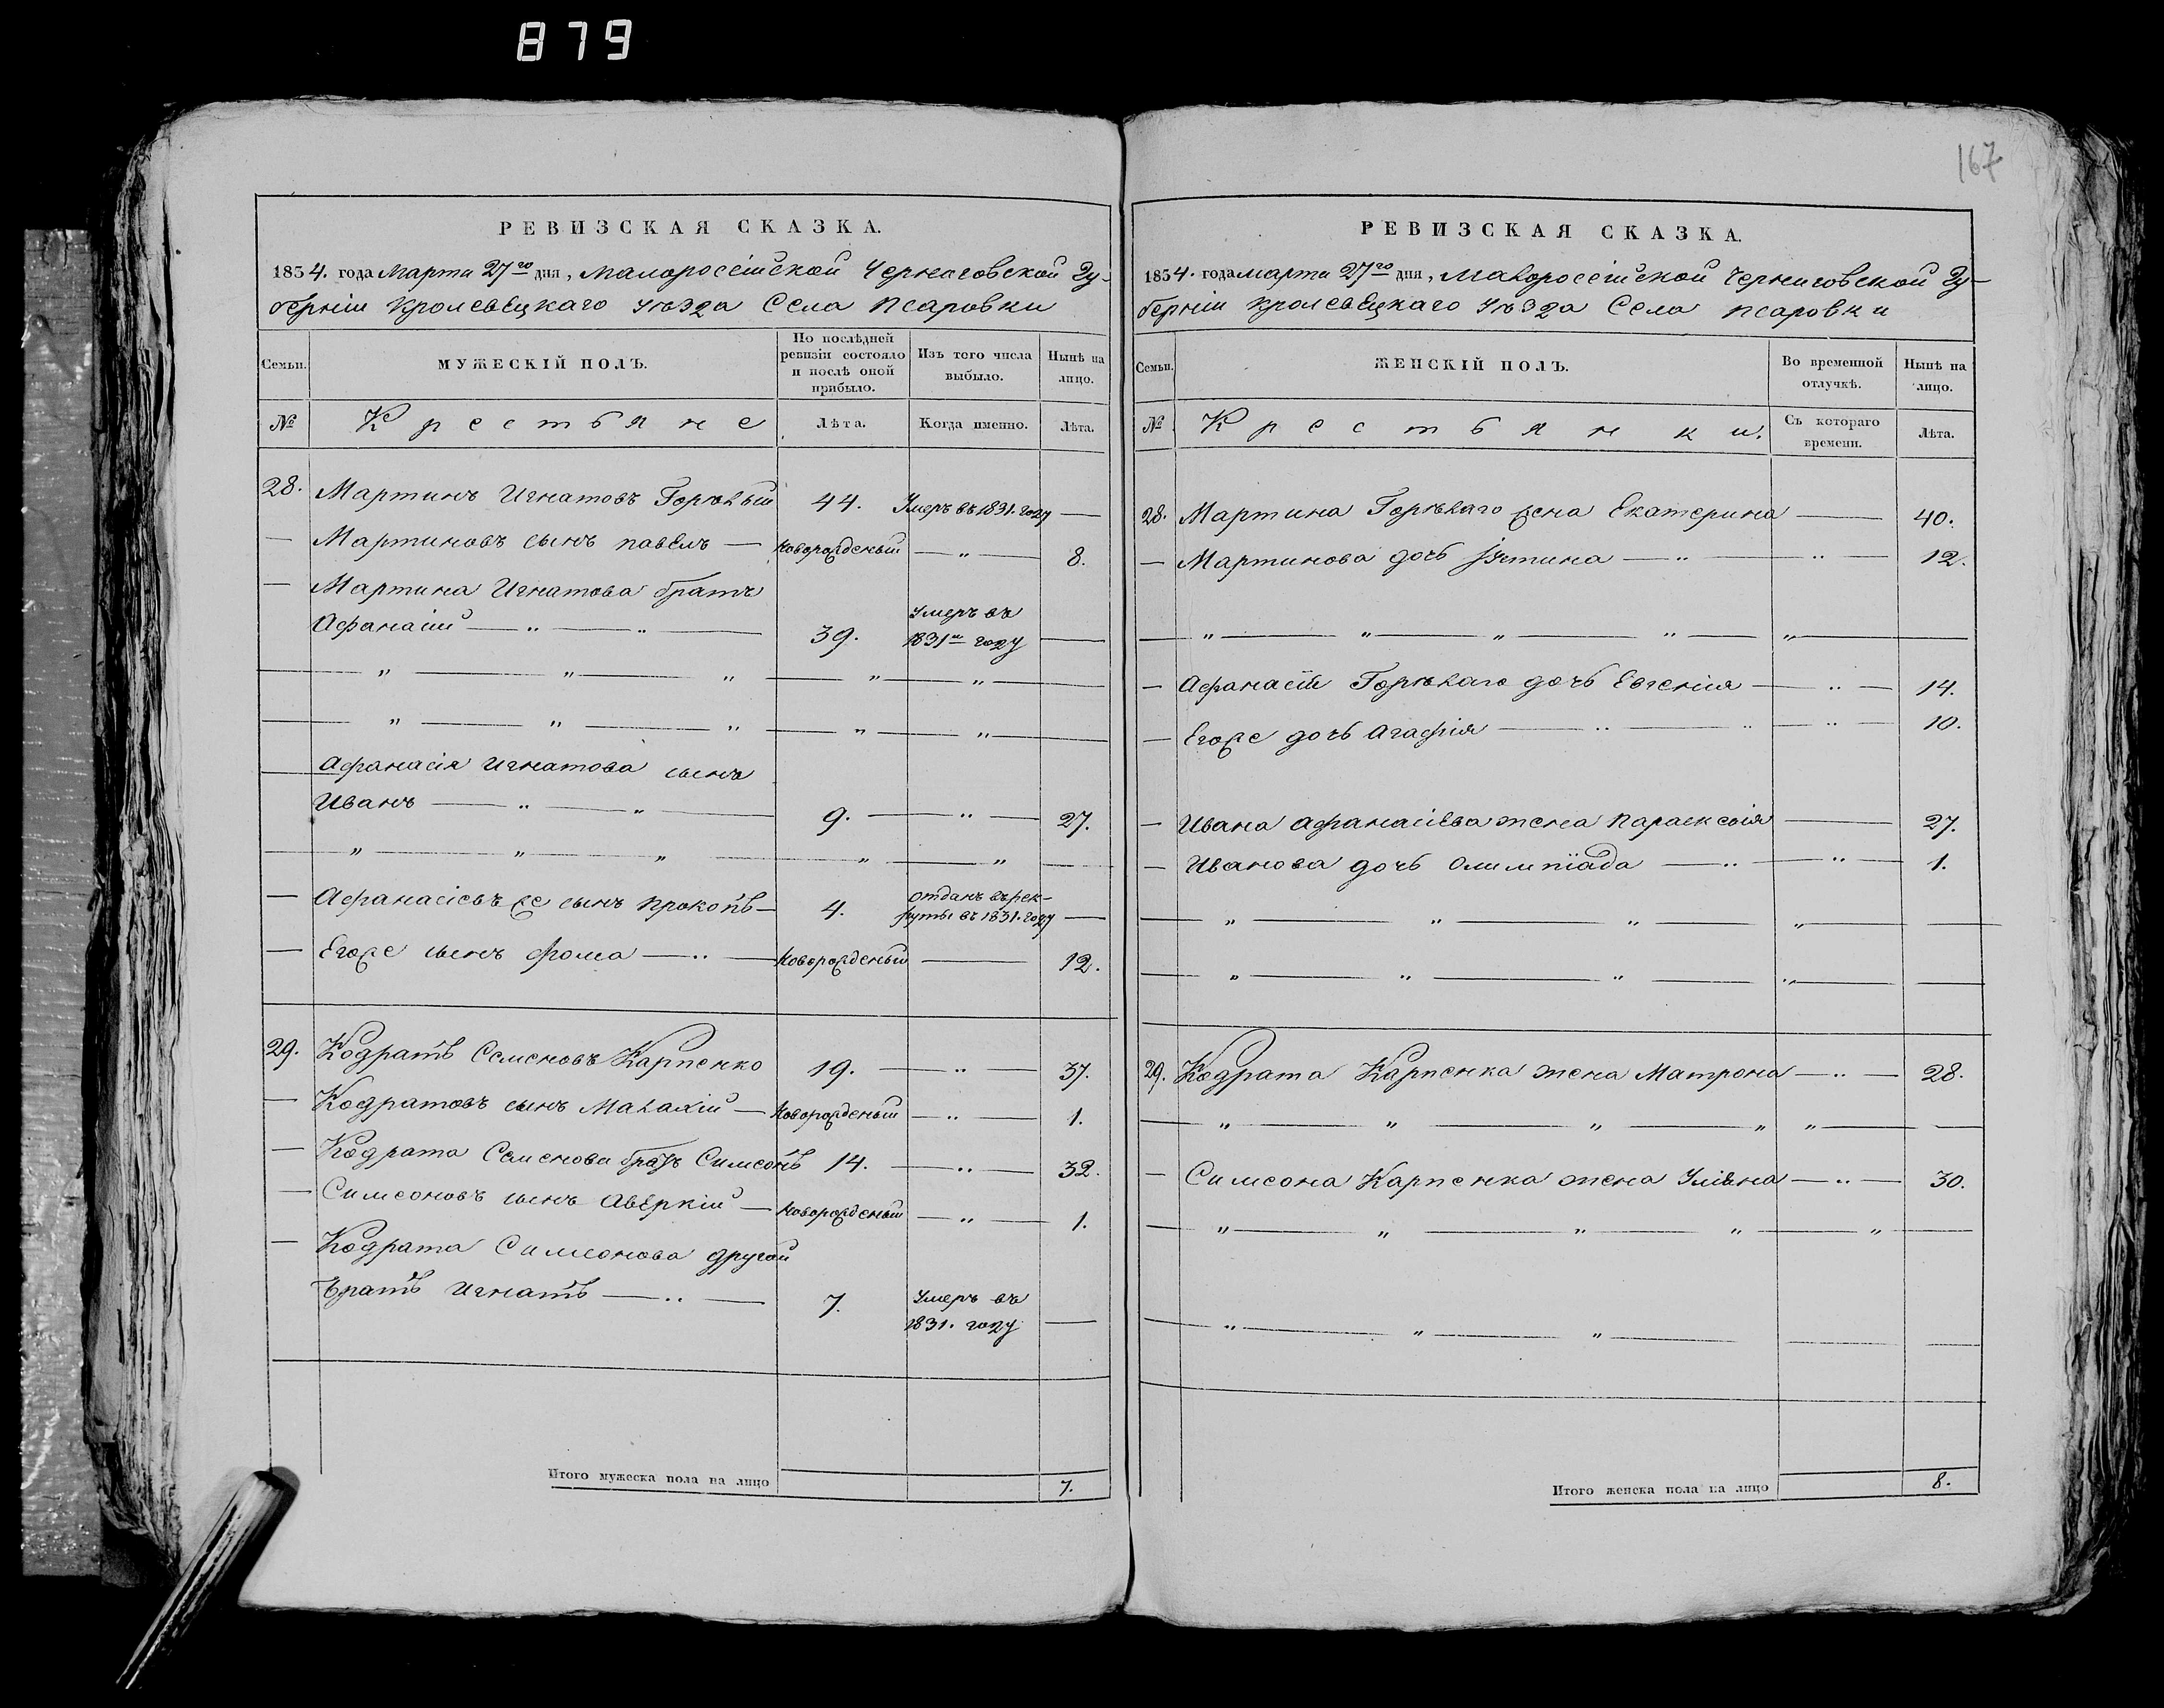 879
167
РЕВИЗСКАЯ СКАЗКА.
1834. года Марта 27го дня, Малороссійской Черниговской Гу-
берніи Кролевецкаго уѣзда Села Псаровки
Семьи.
МУЖЕСКІЙ ПОЛЪ.
По послѣдней ревизіи состояло и послѣ оной прибыло.
Изъ того числа выбыло.
Нынѣ на лицо.
№
Крестьяне
Лѣта.
Когда именно.
Лѣта.
28. Мартинъ Игнатовъ Горѣлый 44. Умеръ въ 1831. году —
— Мартиновъ сынъ Павелъ — новорожденый — „ — 8.
— Мартина Игнатова братъ
Афанасій — „ — „ — 39. Умеръ въ 1831м году —
— „ — „ — „ — „ — „ —
— „ — „ — „ — „ — „ —
— Афанасія Игнатова сынъ
Иванъ — „ — „ — 9. — „ — 27.
— „ — „ — „ — „ — „ —
— Афанасіевъ же сынъ Прокопъ — 4. отданъ въ рек-
руты въ 1831. году —
— Егоже сынъ Фома — „ — новорожденый — 12.
29. Кодратъ Семеновъ Карпенко 19. — „ — 37.
— Кодратовъ сынъ Малахій — новорожденый — „ — 1.
— Кодрата Семенова братъ Симеонъ 14. — „ — 32.
— Симеоновъ сынъ Аверкій — новорожденый — „ — 1.
— Кодрата Симеонова другой
братъ Игнатъ — „ — 7. Умеръ въ
1831. году —
Итого мужеска пола на лицо 7.
РЕВИЗСКАЯ СКАЗКА.
1834. года марта 27го дня, Малороссійской Черниговской Гу-
берніи Кролевецкаго уѣзда Села Псаровки
Семьи.
ЖЕНСКІЙ ПОЛЪ.
Во временной отлучкѣ.
Нынѣ на лицо.
№
Крестьянки.
Съ котораго времени.
Лѣта.
28. Мартина Горѣлаго жена Екатерина — 40.
— Мартинова дочь Іустина — „ — „ — 12.
— „ — „ — „ — „ — „ —
— Афанасія Горѣлаго дочь Евгенія — „ — 14.
— Егоже дочь Агафія — „ — „ — „ — 10.
— Ивана Афанасіева жена Параскевія — 27.
— Иванова дочь Олимпіада — „ — „ — 1.
— „ — „ — „ — „ —
— „ — „ — „ — „ —
29. Кодрата Карпенка жена Матрона — „ — 28.
— „ — „ — „ — „ — „ —
— Симеона Карпенка жена Уліяна — „ — 30.
— „ — „ — „ — „ — „ —
— „ — „ — „ —
Итого женска пола на лицо 8.